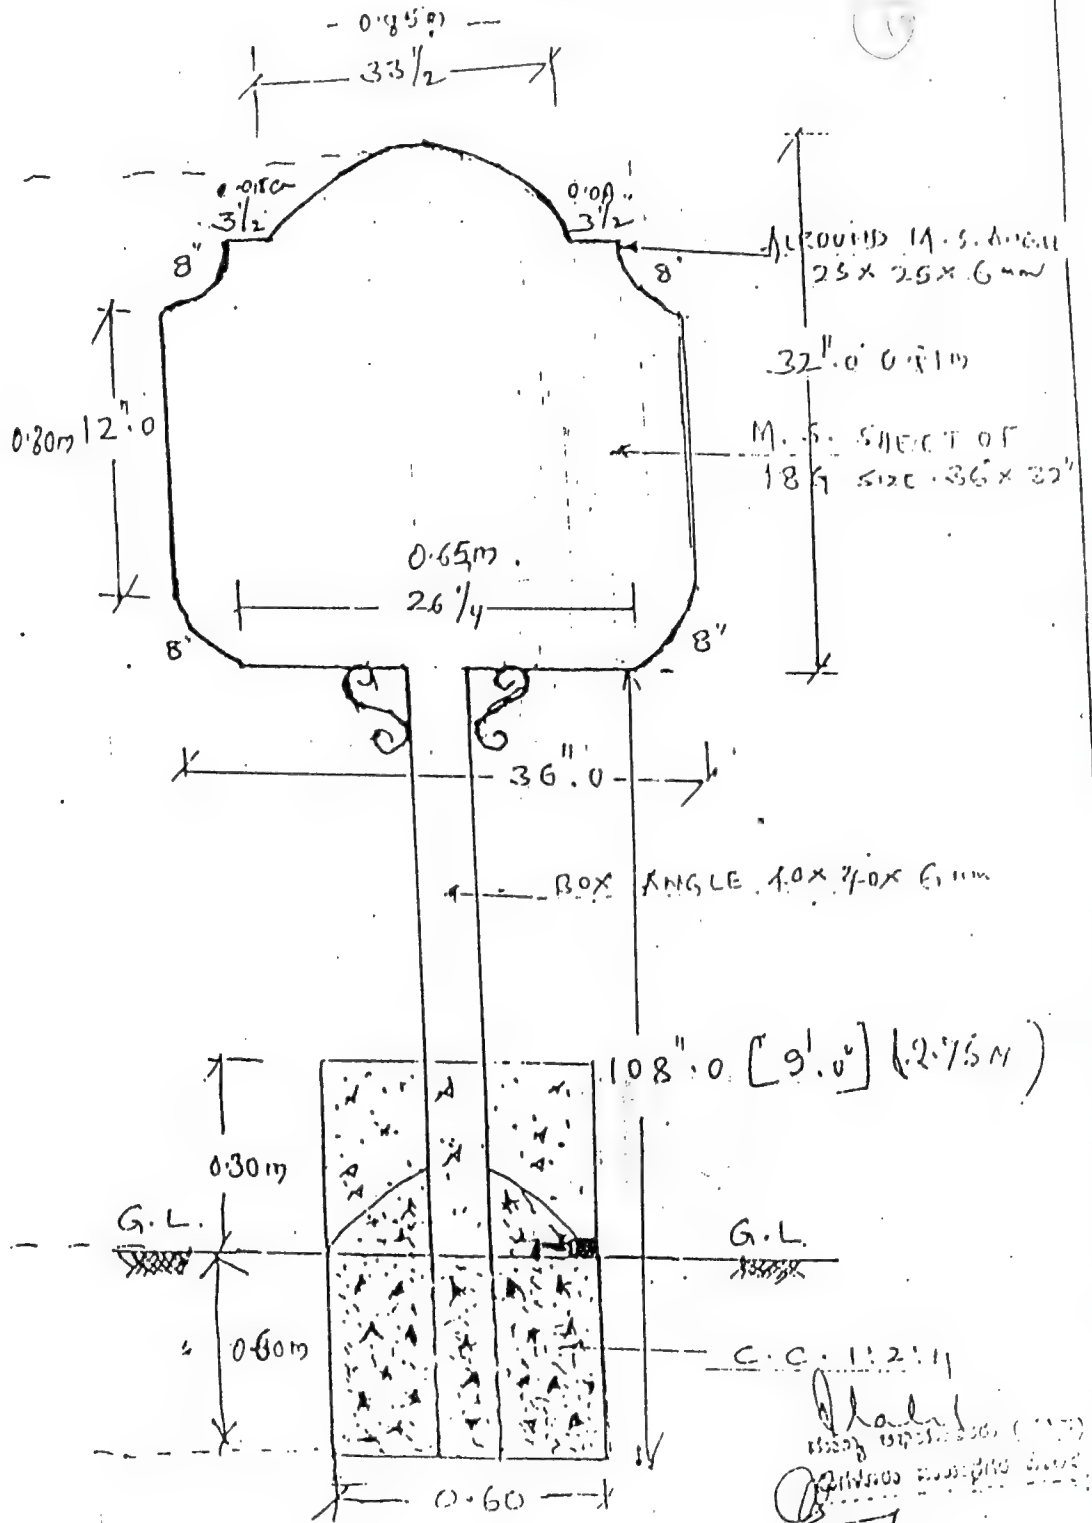 0.85m
33 1/2
3 1/2
0.09
3 1/2
8"
8"
ALROUND M.S. ANGLE
25 x 25 x 6 mm
32".0 0.81m
0.30m 12".0
M.S. SHEET OF
18 G SIZE 36" x 32"
0.65m.
26 1/4
8"
8"
36".0
BOX ANGLE 40 x 40 x 6 mm
108".0 [9'.0"] (2.75M)
0.30m
G.L.
G.L.
0.60m
C.C. 1:2:4
0.60